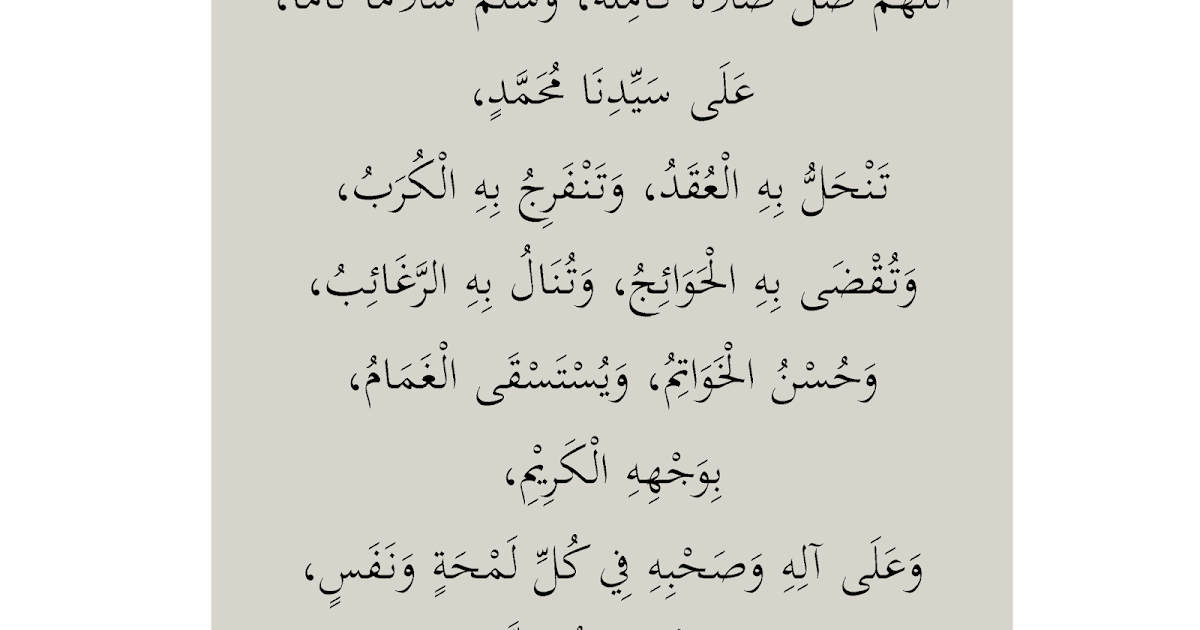 اللهم صل صلاة كاملة، وسلم سلاما تاما،
عَلَى سَيِّدِنَا مُحَمَّدٍ،
تَنْحَلُّ بِهِ الْعُقَدُ، وَتَنْفَرِجُ بِهِ الْكُرَبُ،
وَتُقْضَى بِهِ الْحَوَائِجُ، وَتُنَالُ بِهِ الرَّغَائِبُ،
وَحُسْنُ الْخَوَاتِمُ، وَيُسْتَسْقَى الْغَمَامُ،
بِوَجْهِهِ الْكَرِيْمِ،
وَعَلَى آلِهِ وَصَحْبِهِ فِي كُلِّ لَمْحَةٍ وَنَفَسٍ،